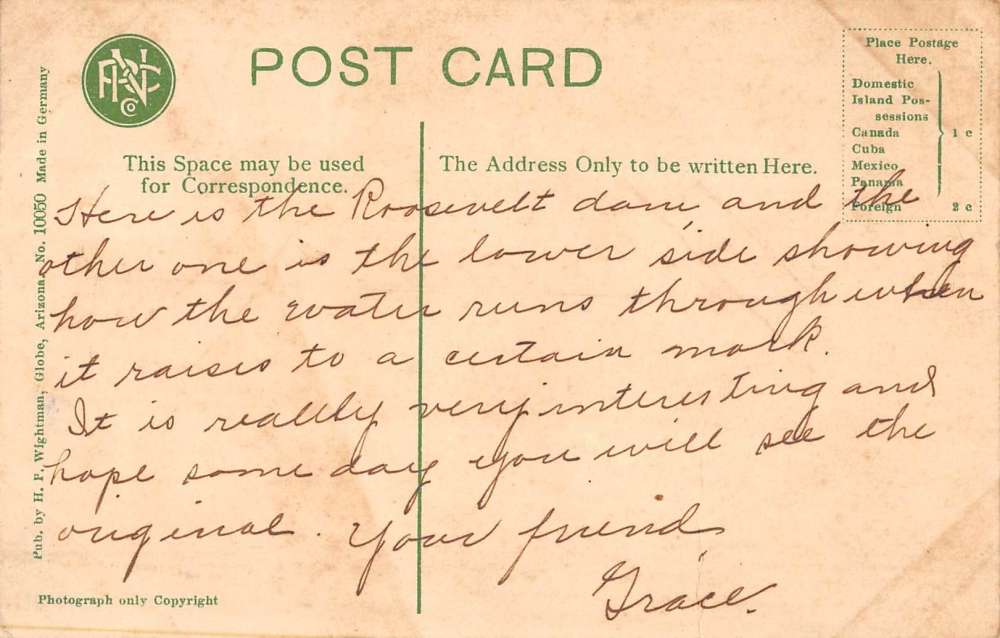 ANVC
Co
POST CARD
Place Postage
Here.
Domestic
Island Pos-
sessions
Canada
Cuba
Mexico
Panama
1 c
Foreign 2 c
This Space may be used
for Correspondence.
The Address Only to be written Here.
Here is the Roosevelt dam and the
other one is the lower side showing
how the water runs through when
it raises to a certain mark.
It is really very interesting and
hope some day you will see the
original. Your friend
Grace.
Pub. by H. P. Wightman, Globe, Arizona, No. 10050 Made in Germany
Photograph only Copyright